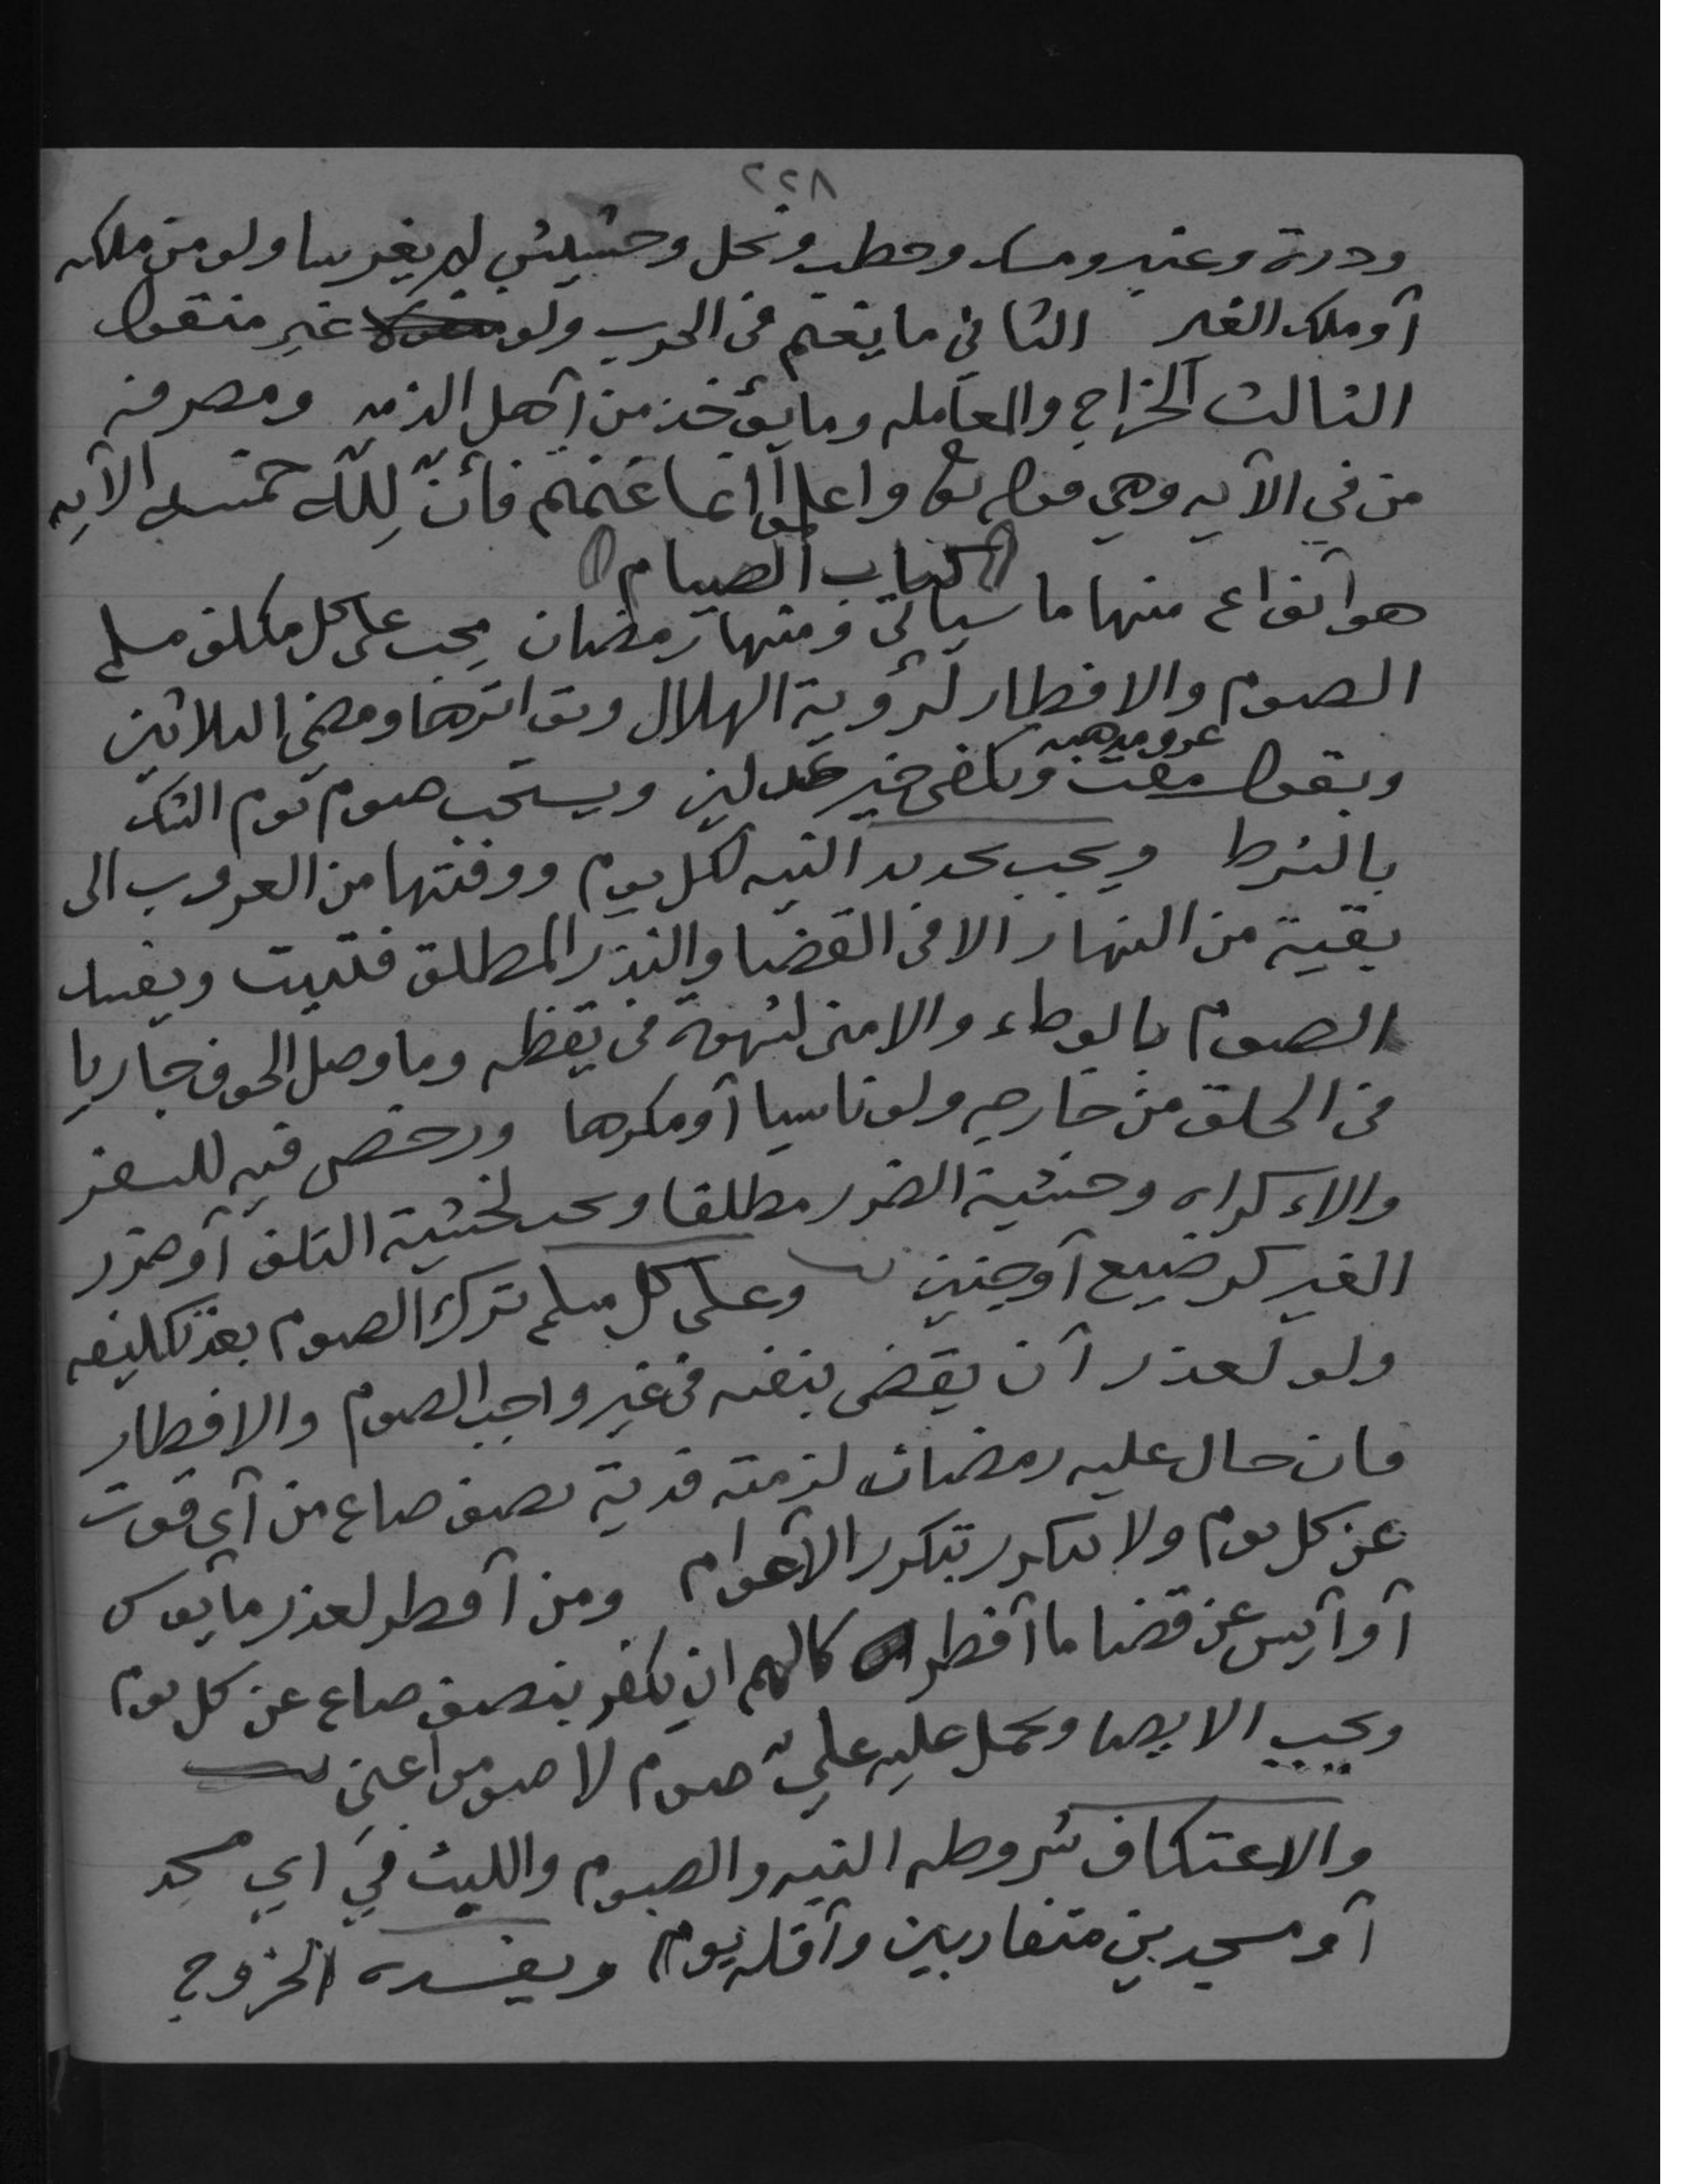 ٢٢٨
ودرة وعنبر ومسك وحطب ونحل وحشيش لم يغرسا ولو من ملكه
أو ملك الغير الثاني ما يغنم في الحرب ولو غير منقول
الثالث الخراج والمعامله وما يؤخذ من أهل الذمه ومصرفه
من في الآيه وهي قوله تع واعلموا انما غنمتم فأنّ لِلّه خمسه الآيه
كتاب الصيام
هو أنواع منها ما سيأتي ومنها رمضان يجب على كل مكلف مسلم
الصوم والافطار لرؤية الهلال وتواترها ومضي الثلاثين
وبقول مفت عرف مذهبه ويكفي خبر عدلين ويستحب صوم يوم الشك
بالشرط ويجب تجديد النيه لكل يوم ووقتها من الغروب الى
بقية من النهار الا في القضا والنذر المطلق فتبيت ويفسد
الصوم بالوطء والامنى لشهوة في يقظه وما وصل الجوف جاريا
في الحلق من خارجه ولو ناسيا أو مكرها ورخص فيه للسفر
والاءكراه وخشية الضرر مطلقا ويجب لخشية التلف أو ضرر
الغير كرضيع أو جنين وعلى كل مسلم ترك الصوم بعد تكليفه
ولو لعذر أن يقضي بنفسه في غير واجب الصوم والافطار
فان حال عليه رمضان لزمته فدية نصف صاع من أي قوت
عن كل يوم ولا تتكرر بتكرر الأعوام ومن أفطر لعذر مأيوس
أو أيس عن قضا ما أفطر كالهم ان يكفر بنصف صاع عن كل يوم
ويجب الايصا ويحمل عليه عليّ صوم لا صوموا عني
والاعتكاف شروطه النيه والصوم واللبث في اي مسجد
أو مسجدين متقاربين وأقله يوم ويفسده الخروج